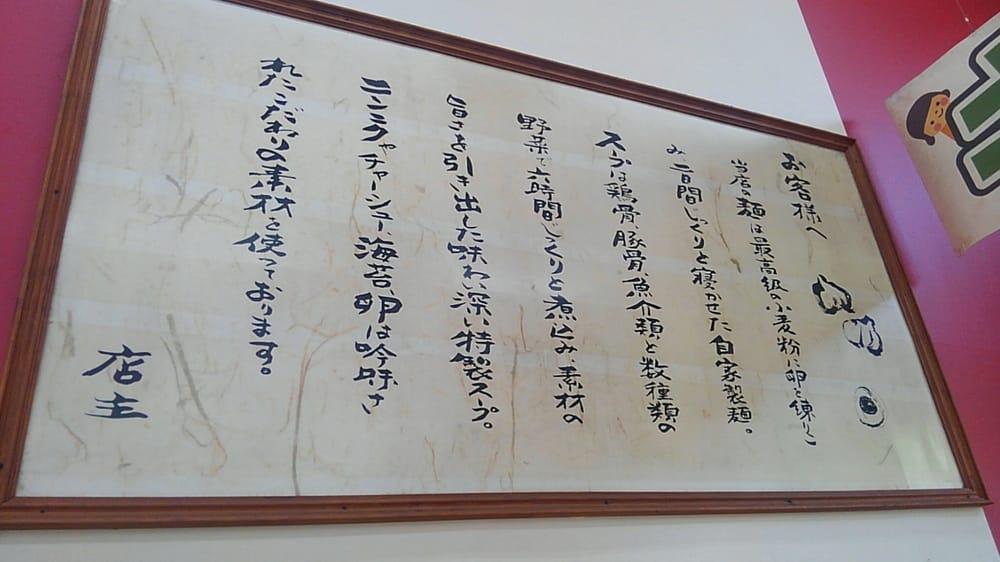 お客様へ
当店の麺は最高級の小麦粉に卵を練りこ
み、二日間じっくりと寝かせた自家製麺。
スープは鶏骨、豚骨、魚介類、と数種類の
野菜で六時間じっくりと煮込み、素材の
旨さを引き出した味わい深い特製スープ。
ニンニクやチャーシュー、海苔、卵は吟味さ
れたこだわりの素材を使っております。
店主